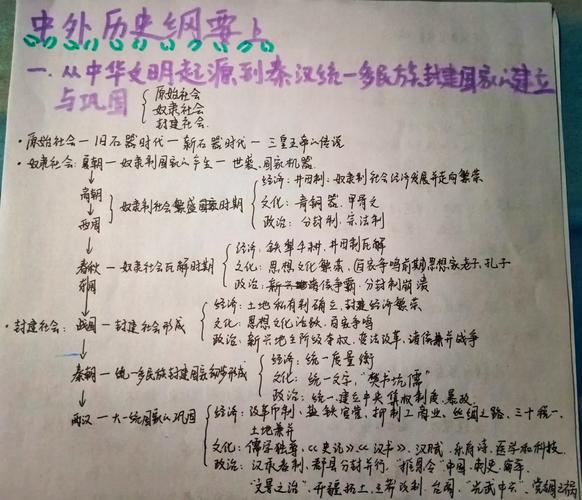 中外历史纲要上
一、从中华文明起源到秦汉统一多民族封建国家的建立
与巩固
原始社会
奴隶社会
封建社会
·原始社会—旧石器时代—新石器时代—三皇五帝的传说
·奴隶社会:夏朝—奴隶制国家的产生—世袭、国家机器
商朝
西周
奴隶制社会繁盛国家时期
经济:井田制:奴隶制社会经济发展并走向繁荣
文化:青铜器、甲骨文
政治:分封制、宗法制
春秋
奴隶社会瓦解时期
经济:铁犁牛耕,井田制瓦解
文化:思想文化繁荣,百家争鸣前期思想家老子、孔子
政治:诸侯争霸·分封制崩溃
·封建社会:战国—封建社会形成
经济:土地私有制确立,封建经济繁荣
文化:思想文化活跃,百家争鸣
政治:新兴地主阶级夺权,变法改革,诸侯兼并战争
秦朝—统一多民族封建国家初步形成
经济:统一度量衡
文化:统一文字,“焚书坑儒”
政治:统一、建立中央集权制度、暴政
两汉—大一统国家的巩固
经济:改革币制、盐铁官营,抑制工商业、丝绸之路、三十税一、
土地兼并
文化:儒学独尊、《史记》《汉书》、汉赋、乐府诗、医学和科技
政治:汉承秦制、郡县分封并行、“推恩令”中国、刺史、
“文景之治”、开疆拓土、王莽改制、“光武中兴”、